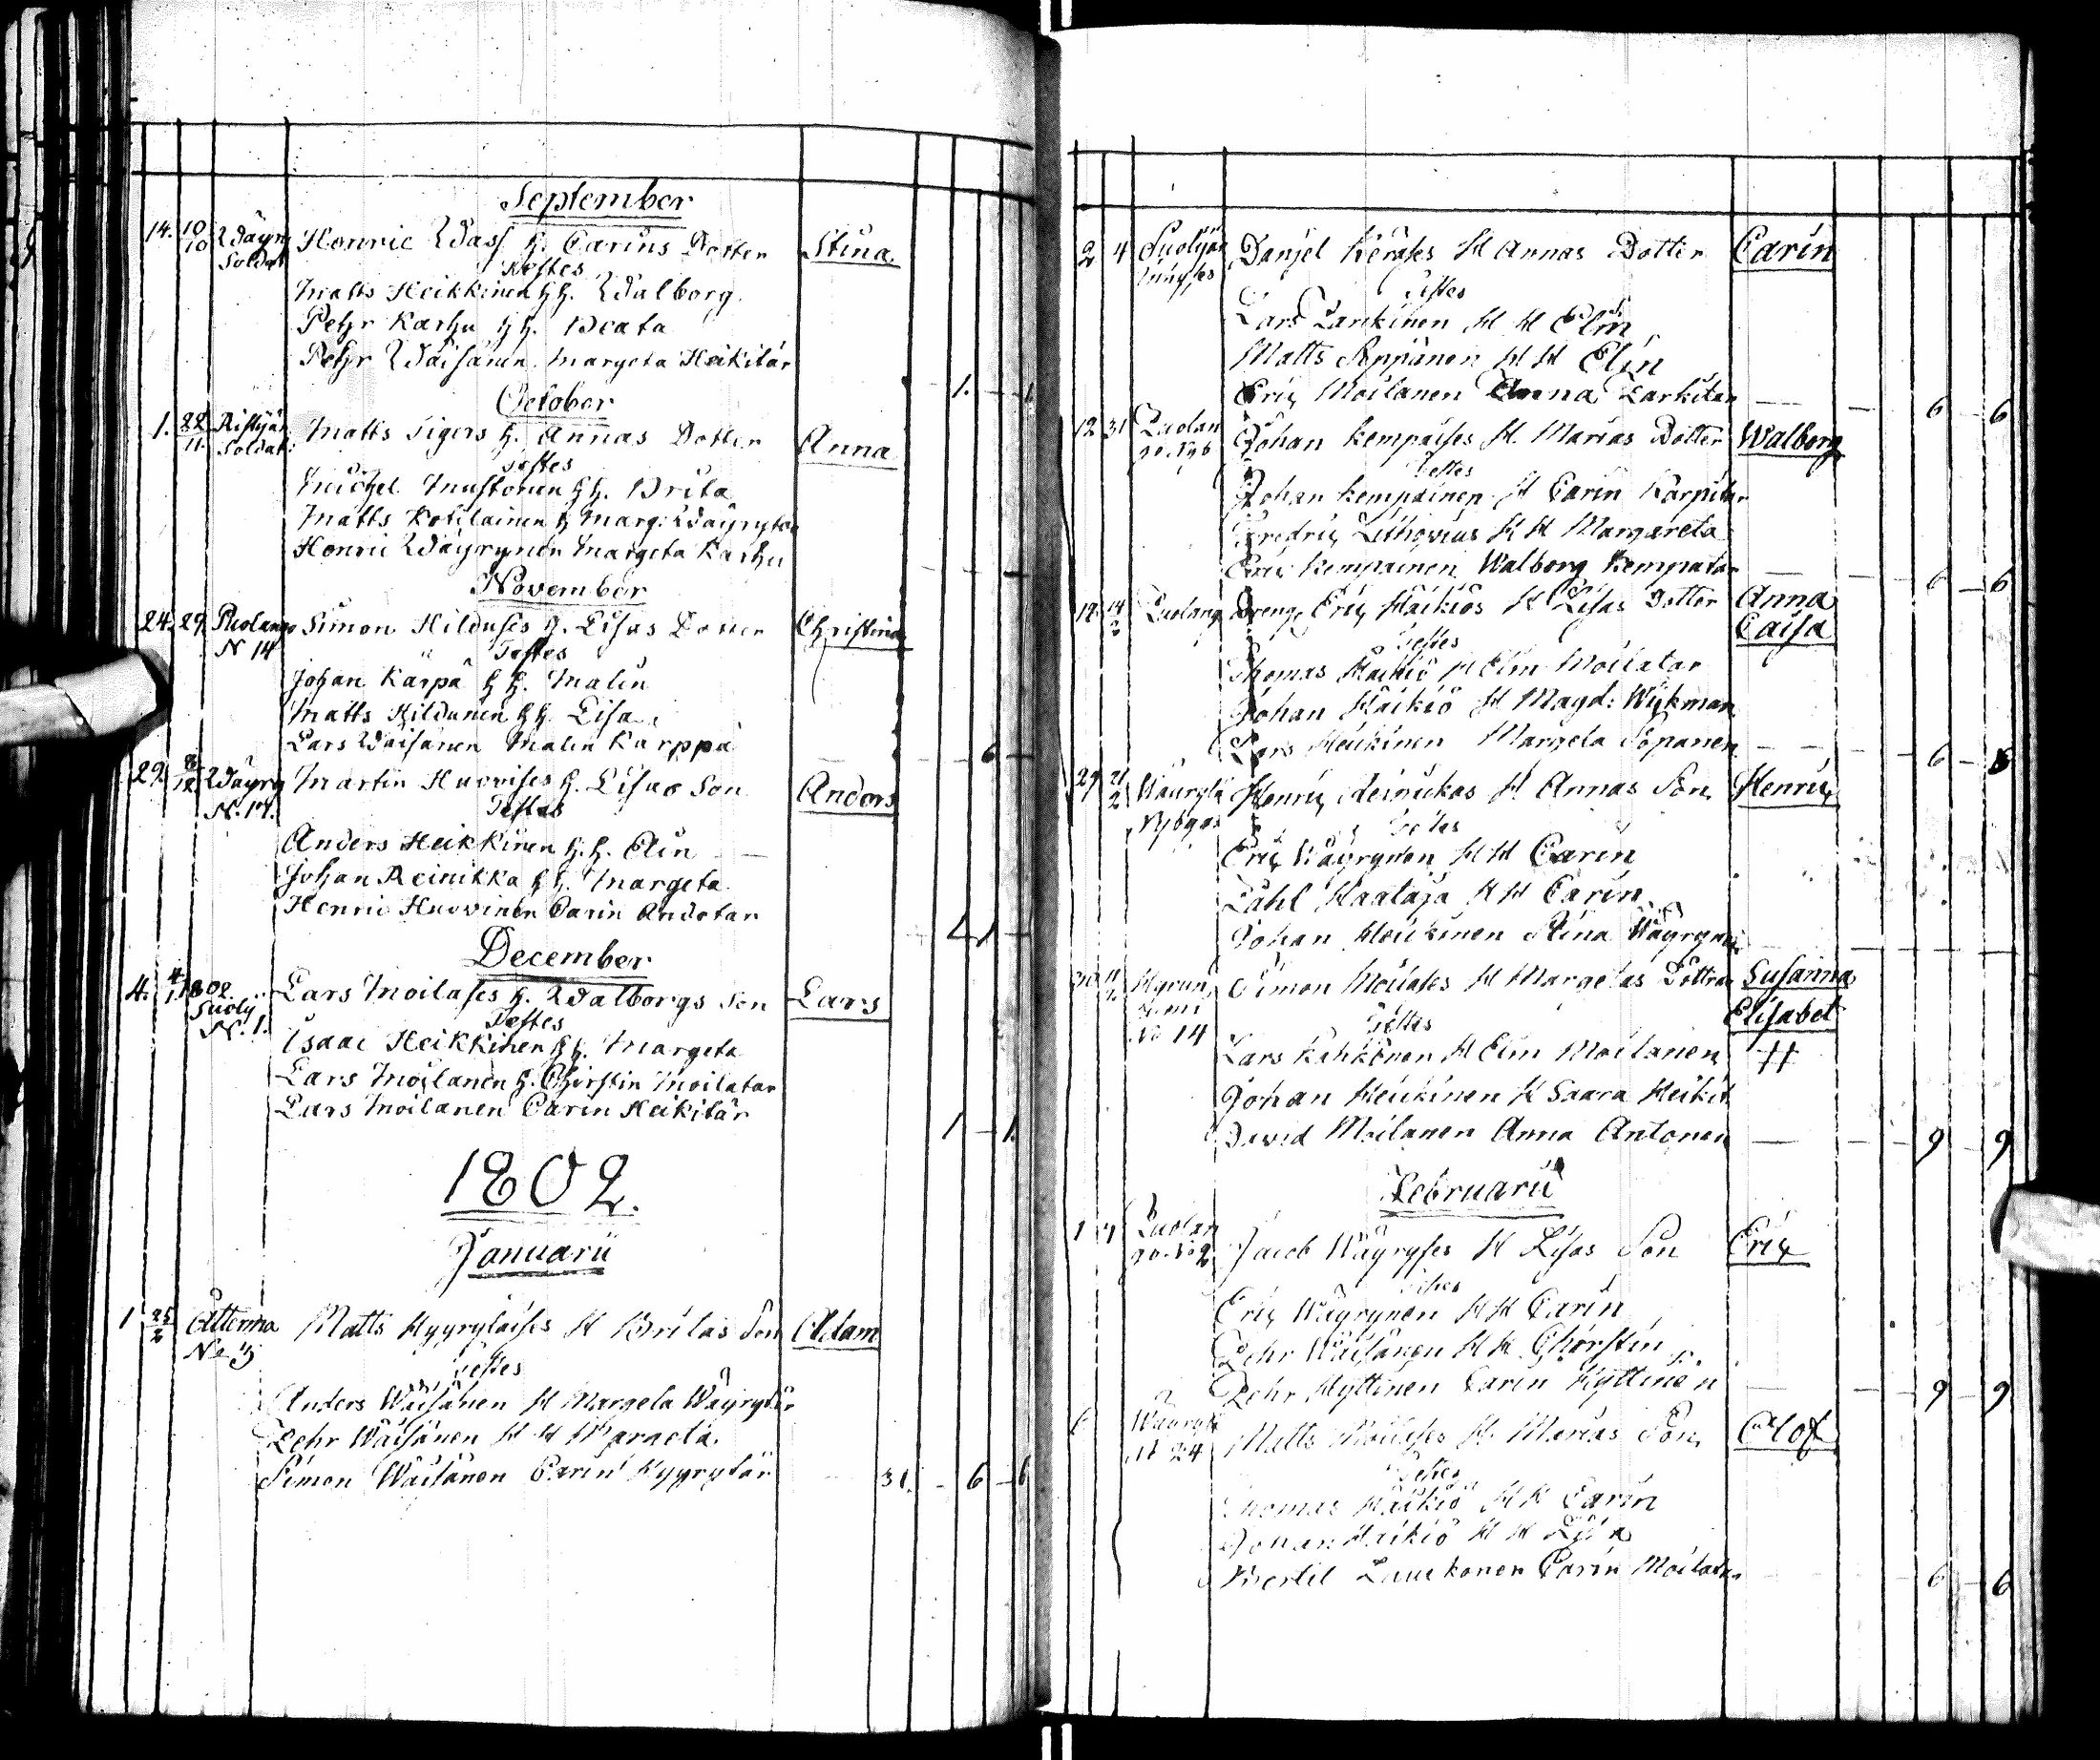 September
14. 10/10 Wäyry Henric Wass h. Carins Dotter Stina
Soldat Testes
Matts Heikkinen h h. Walborg
Pehr Karhu h h. Beata
Pehr Wäisänen Margeta Heikitär
1. 1
October
1. 22/11 Ristijär Matts Tigers h. Annas Dotter Anna
Soldat Testes
Michel Mustonen h h. Brita
Matts Kokilainen h Marg: Wäyrytär
Henric Wäyrynen Margeta Karhu
November
24. 29 Puolango Simon Hilduses h. Lisas Dotter Christina
N 14 Testes
Johan Kärpä h h. Malin
Matts Hildunen h h. Lisa
Lars Wäisänen Malin Karppa
6
29. 8/12 Wäyry Martin Huovises h. Lisas Son Anders
N. 17. Testes
Anders Heikkinen h. h. Elin
Johan Reinikka h h. Margeta
Henric Huovinen Carin Andetar
December
4. 4/1 1802. Lars Moilases h. Walborgs Son Lars
Suolij N. 1. Testes
Isaac Heikkinen h h. Margeta
Lars Moilanen h. Chirstin Moilatar
Lars Moilanen Carin Heikitär
1 1.
1802.
Januarii
1 25/2 Matts Hyyryläises H Britas Son Adam
No 3 Testes
Anders Wäisänen H Margeta Wäyrytär
Pehr Wäisänen H H Margeta
Simon Wäisänen Carin Hyyrytär
31. 6 6
2 4 Suolijär Danjel Keräses H Annas Dotter Carin
Testes
Lars Lankinen H H Elin
Matts Seppänen H H Elin
Eric Moilanen Anna Larkitar
6 6
12 31 Puolan Johan Kempaises H. Marias Dotter Walborg
go Nyb Testes
Johan Kempainen H Carin Karpitar
Fredric Lithovius H H Margareta
Eric Kempainen Walborg Kempatar
6 6
19. 14/2 Puolang Dreng. Eric Häikiös H Lisas Dotter Anna
Caisa
Testes
Thomas Häikiö H Elin Moilatar
Johan Häikiö H Magd: Wikman
Lars Heikinen Margeta Sopanen
6 6
29 21/2 Wäyrylä Henric Reinickas H. Annas Son Henric
Nybygge Testes
Eric Wäyrynen H H Carin
Påhl Haataja H H Carin
Johan Heikinen Stina Wäyrynen
30 11/2 Hyryn Simon Moilases H Margetas Döttrar Susanna
Elisabet
No 14 Testes
Lars Kähkönen H Elin Moilanen
Johan Heikinen H Saara Heikit
David Moilanen Anna Antonen
9 9
Februarii
1 7 Puolan Jacob Wäyryses H Lisas Son Eric
go No 2 Testes
Eric Wäyrynen H H Carin
Pehr Wäisänen H H Chirstin
Pehr Hyttinen Carin Hyttinen
9 9
6 Wäyrylä Matts Moilases H. Marias Son Olof
N 24 Testes
Thomas Häikiö H H Carin
Johan Häikiö H H Lisa
Bertil Luukonen Carin Moilatar
6 6